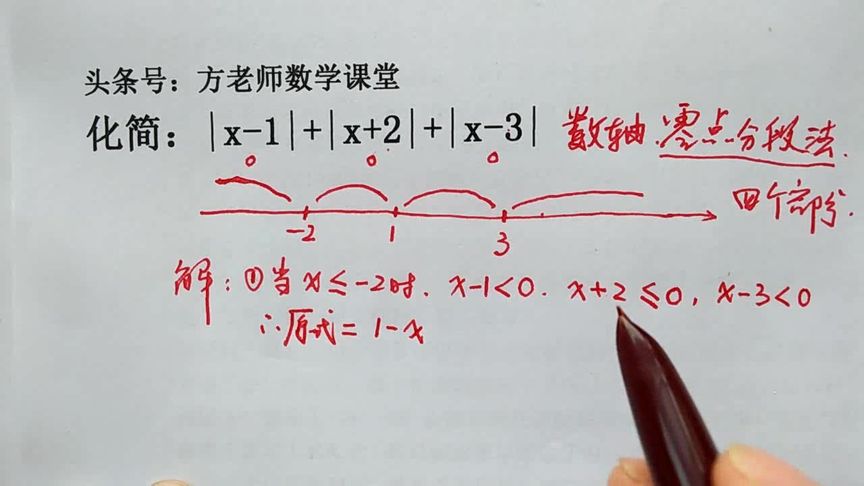 头条号：方老师数学课堂
化简：|x-1|+|x+2|+|x-3| 数轴.零点分段法.
0 0 0
四个部分.
-2 1 3
解：①当x≤-2时. x-1<0. x+2≤0, x-3<0
∴原式=1-x